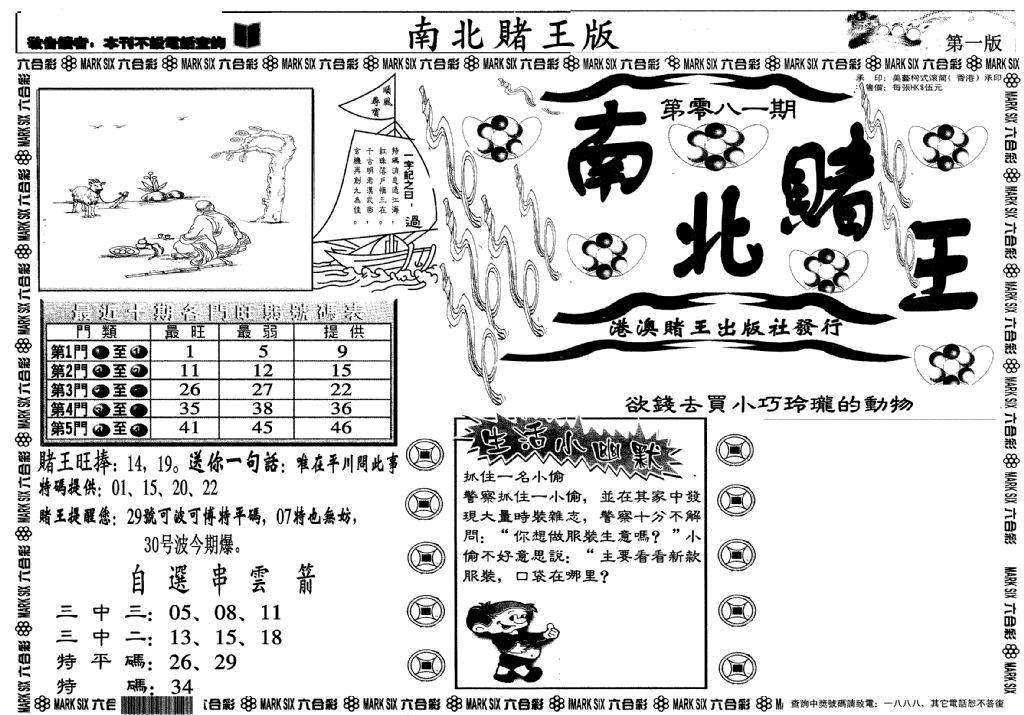 敬告讀者：本刊不設電話查詢
南北賭王版
第一版
六合彩 MARK SIX 六合彩 MARK SIX 六合彩 MARK SIX 六合彩 MARK SIX 六合彩 MARK SIX 六合彩 MARK SIX 六合彩 MARK SIX 六合彩 MARK SIX 六合彩 MARK SIX
承印：美藝柯式滾筒(香港)承印
售價：每張HK$伍元
順風
尋寶
一字記之曰：過
特碼消息過江海，
紅珠落戶楊三在。
千古明老漢武帝，
玄機再創九為佳。
第零八一期
南北賭王
港澳賭王出版社發行
欲錢去買小巧玲瓏的動物
最近十期各門旺與號碼表
門類 最旺 最弱 提供
第1門 至 1 5 9
第2門 至 11 12 15
第3門 至 26 27 22
第4門 至 35 38 36
第5門 至 41 45 46
賭王旺捧：14，19。送你一句話：唯在平川問此事
特碼提供：01、15、20、22
賭王提醒您：29號可波可博特平碼，07特也無妨，
30号波今期爆。
自選串雲箭
三中三：05、08、11
三中二：13、15、18
特平碼：26、29
特碼：34
生活小幽默
抓住一名小偷
警察抓住一小偷，並在其家中發
現大量時裝雜志，警察十分不解
問：“你想做服裝生意嗎？”小
偷不好意思說：“主要看看新款
服裝，口袋在哪里？
MARK SIX 六合彩 MARK SIX 六合彩 MARK SIX 六合彩 MARK SIX 六合彩 MARK SIX 六合彩 MARK SIX 六合彩
查詢中獎號碼請致電：一八八八、其它電話恕不答復